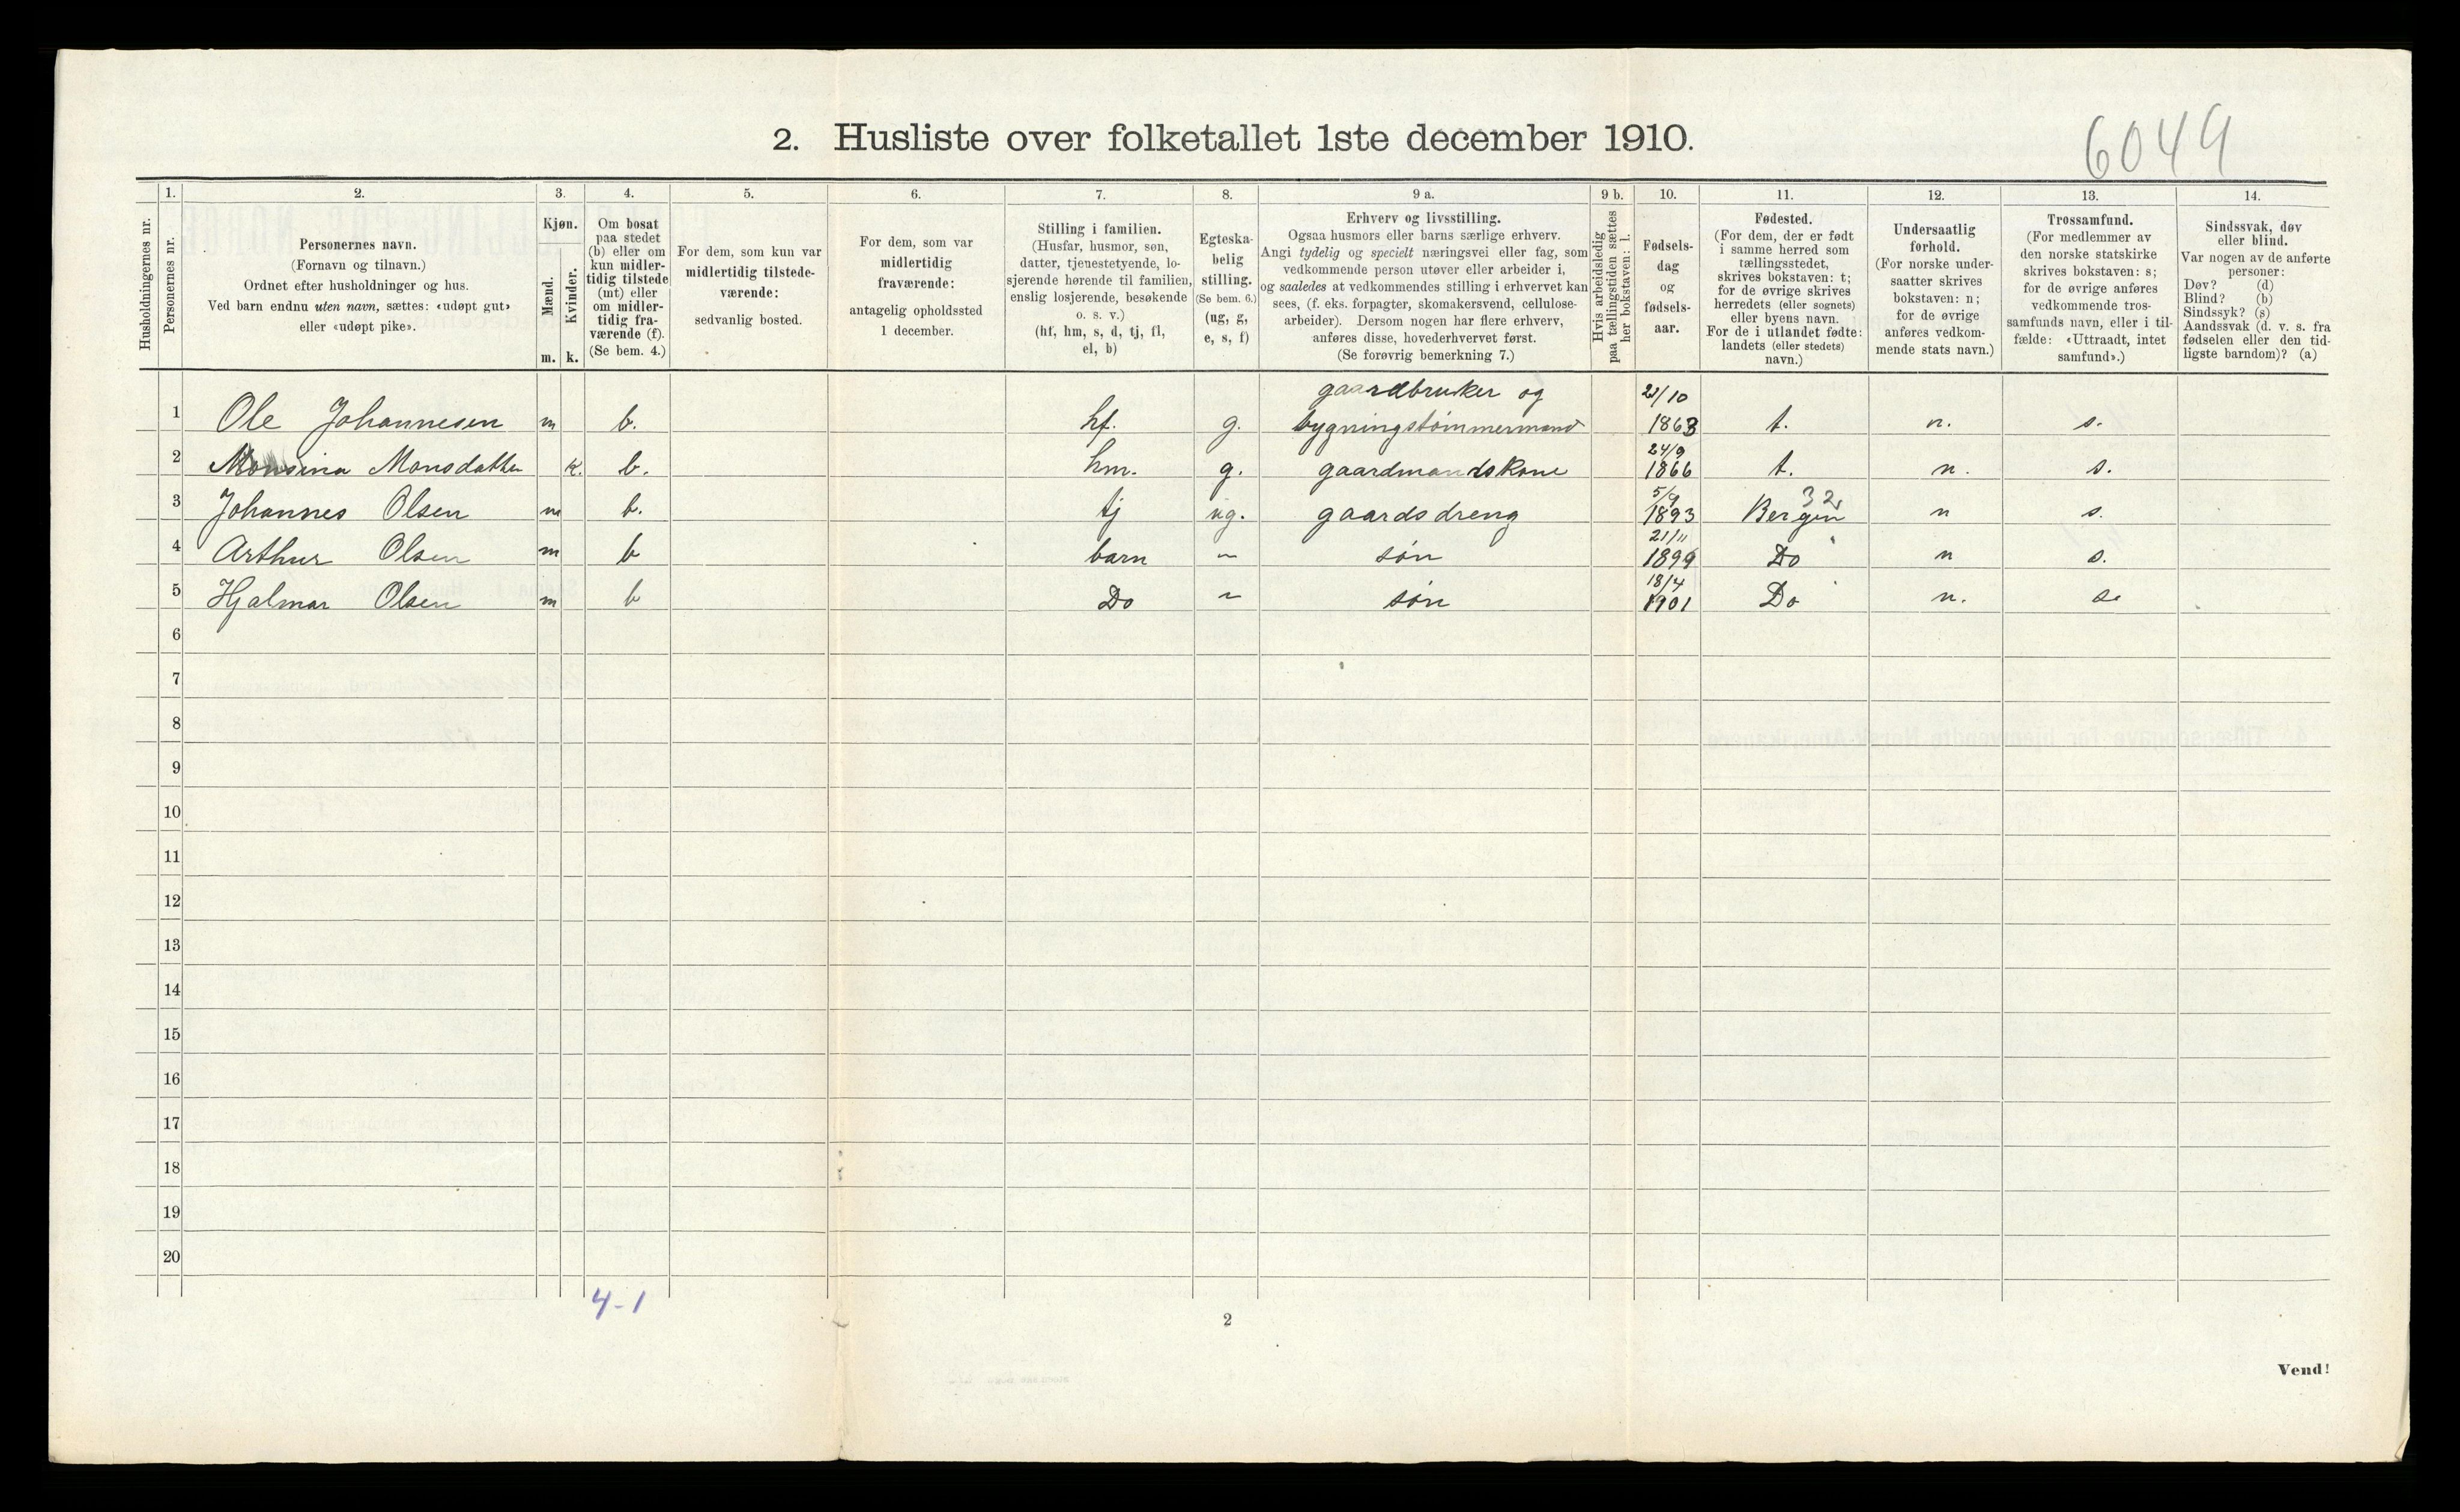 6049
2. Husliste over folketallet 1ste december 1910.
1. 2. 3. 4. 5. 6. 7. 8. 9 a. 9 b. 10. 11. 12. 13. 14.
Husholdningernes nr.
Personernes nr.
Personernes navn.
(Fornavn og tilnavn.)
Ordnet efter husholdninger og hus.
Ved barn endnu uten navn, sættes: «udøpt gut»
eller «udøpt pike».
Kjøn.
Mænd.
Kvinder.
m. k.
Om bosat
paa stedet
(b) eller om
kun midler-
tidig tilstede
(mt) eller
om midler-
tidig fra-
værende (f).
(Se bem. 4.)
For dem, som kun var
midlertidig tilstede-
værende:
sedvanlig bosted.
For dem, som var
midlertidig
fraværende:
antagelig opholdssted
1 december.
Stilling i familien.
(Husfar, husmor, søn,
datter, tjenestetyende, lo-
sjerende hørende til familien,
enslig losjerende, besøkende
o. s. v.)
(hf, hm, s, d, tj, fl,
el, b)
Egteska-
belig
stilling.
(Se bem. 6.)
(ug, g,
e, s, f)
Erhverv og livsstilling.
Ogsaa husmors eller barns særlige erhverv.
Angi tydelig og specielt næringsvei eller fag, som
vedkommende person utøver eller arbeider i,
og saaledes at vedkommendes stilling i erhvervet kan
sees, (f. eks. forpagter, skomakersvend, cellulose-
arbeider). Dersom nogen har flere erhverv,
anføres disse, hovederhvervet først.
(Se forøvrig bemerkning 7.)
Hvis arbeidsledig
paa tællingstiden sættes
her bokstaven: l.
Fødsels-
dag
og
fødsels-
aar.
Fødested.
(For dem, der er født
i samme herred som
tællingsstedet,
skrives bokstaven: t;
for de øvrige skrives
herredets (eller sognets)
eller byens navn.
For de i utlandet fødte:
landets (eller stedets)
navn.)
Undersaatlig
forhold.
(For norske under-
saatter skrives
bokstaven: n;
for de øvrige
anføres vedkom-
mende stats navn.)
Trossamfund.
(For medlemmer av
den norske statskirke
skrives bokstaven: s;
for de øvrige anføres
vedkommende tros-
samfunds navn, eller i til-
fælde: «Uttraadt, intet
samfund».)
Sindssvak, døv
eller blind.
Var nogen av de anførte
personer:
Døv? (d)
Blind? (b)
Sindssyk? (s)
Aandssvak (d. v. s. fra
fødselen eller den tid-
ligste barndom)? (a)
gaardbruker og
1 Ole Johannesen m b. hf. g. bygningstømmermand /10 1863 t. n. s.
2 Monsina Monsdatter k. b. hm. g. gaardmandskone 24/9 1866 t. n. s.
3 Johannes Olsen m b. tj ug. gaardsdreng 5/9 1893 Bergen 32 n s.
4 Arthur Olsen m b barn - søn 21/11 1899 Do n s.
5 Hjalmar Olsen m b Do - søn 18/4 1901 Do n. s.
6
7
8
9
10
11
12
13
14
15
16
17
18
19
20
4-1
2
Vend!